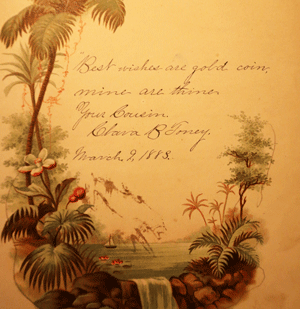 Best wishes are gold coin,
mine are thine.
Your Cousin.
Clara B Toney.
March 9, 1883.